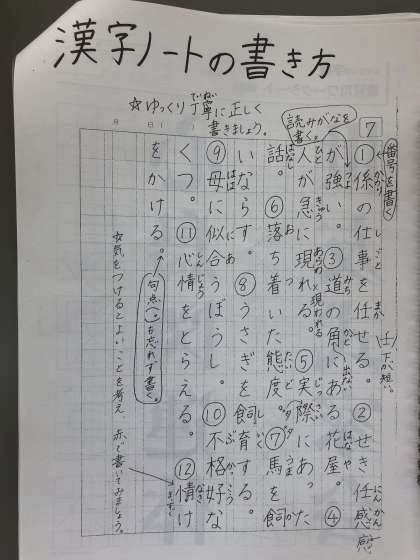 漢字ノートの書き方
☆ゆっくり丁寧に正しく
ていねい
書きましょう。
読みがなを
書く。
7
月
日
番号を書く
①係の仕事を任せる。②せき任感
かかり しごと まか にんかん
下が短い。
が強い。③道の角にある花屋。④
つよ みち かど はなや
出ない
人が急に現れる。⑤実際にあった
ひと きゅう あらわ じっさい
×現われる
話。⑥落ち着いた態度。⑦馬を飼
はなし お つ たいど うま か
いならす。⑧うさぎを飼育する。
しいく
⑨母に似合うぼうし。⑩不格好な
はは に あ ぶかっこう
くつ。⑪心情をとらえる。⑫情け
しんじょう なさ
をかける。
句点(。)も忘れず書く。
☆気をつけるとよいことを考え、赤で書いてみましょう。